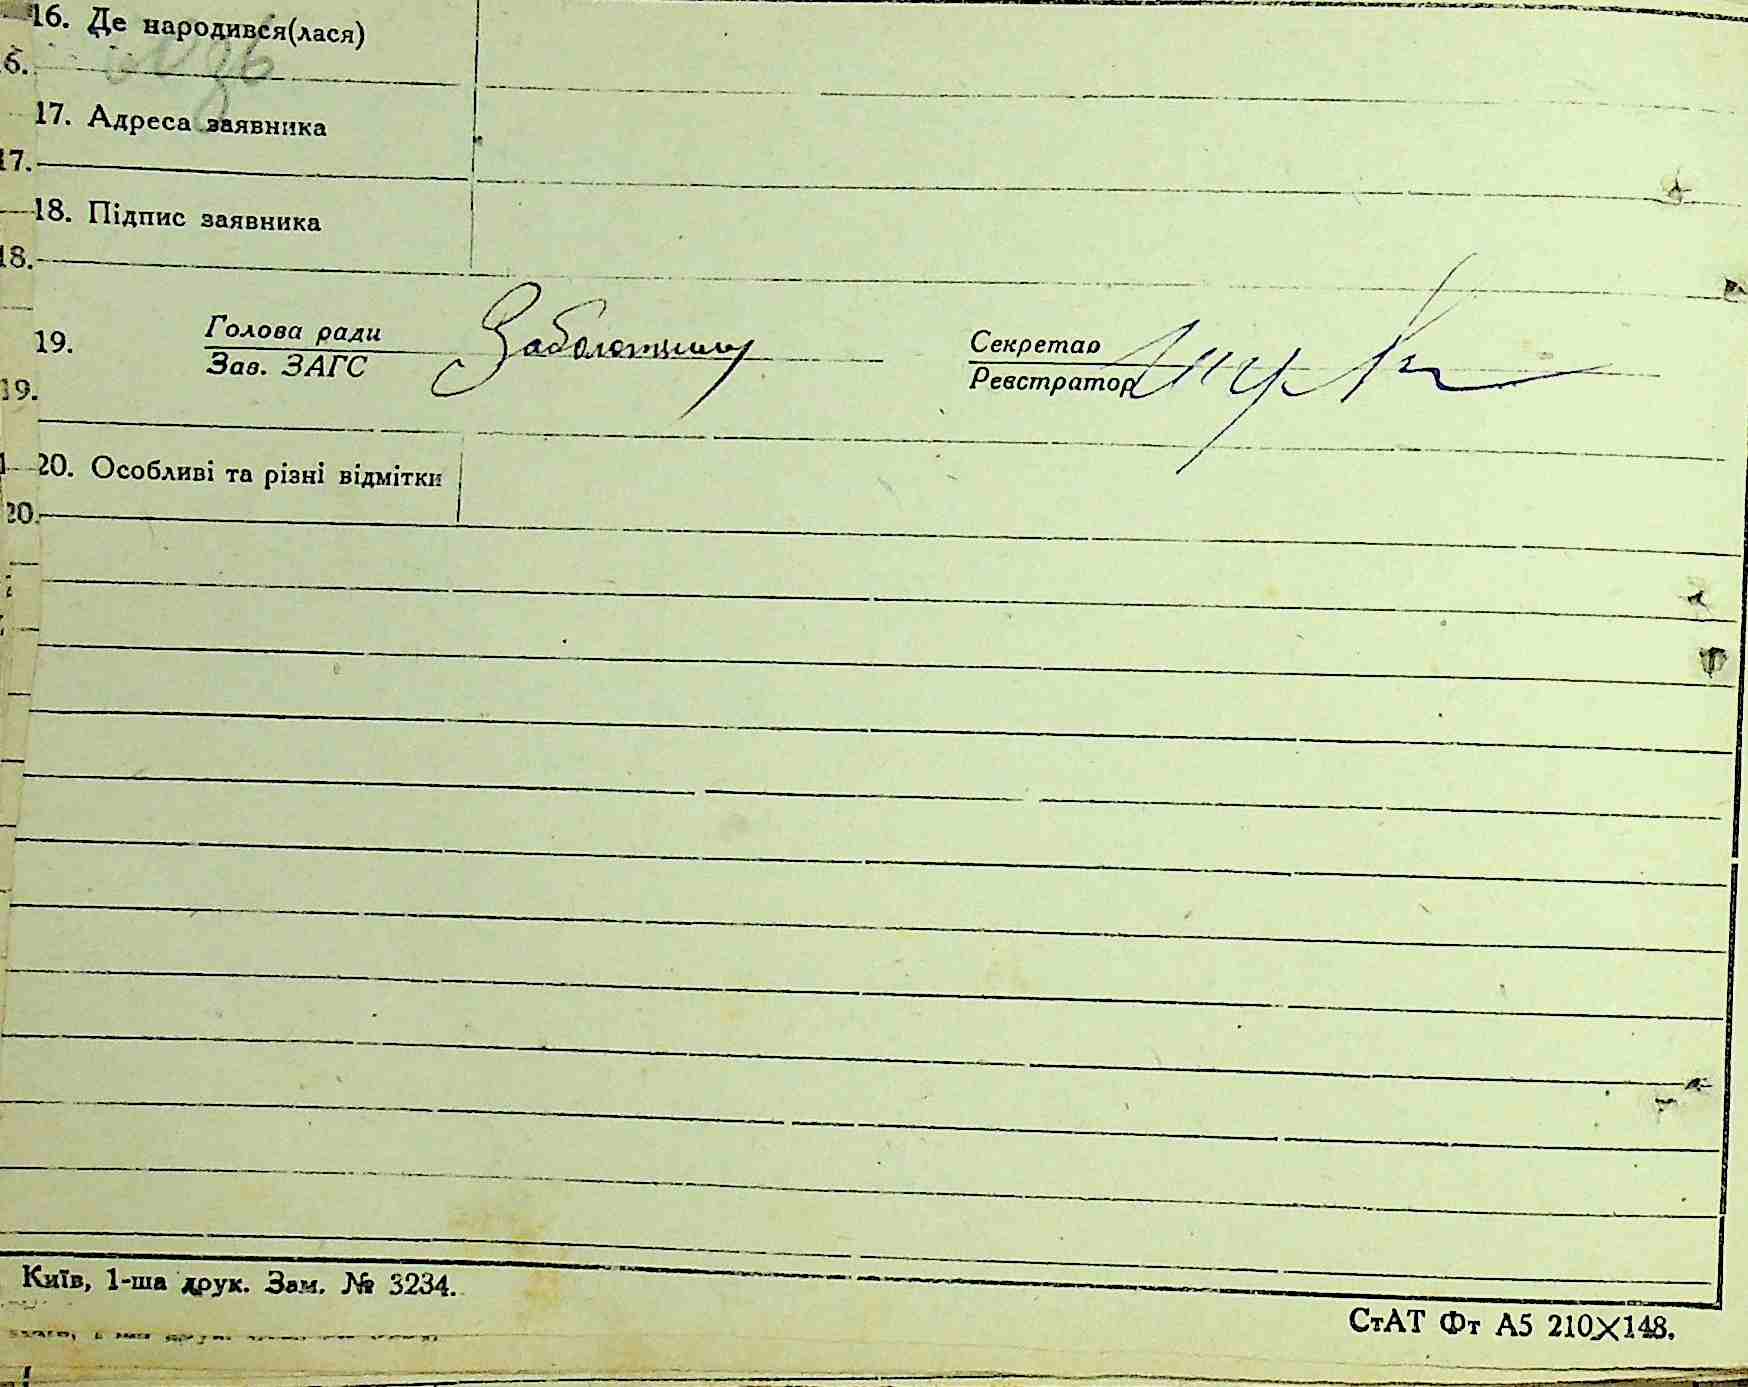 16. Де народився(лася)
6.
17. Адреса заявника
17.
18. Підпис заявника
18.
19. Голова ради Заболотний Секретар
Зав. ЗАГС Реєстратор
19.
20. Особливі та різні відмітки
20.
Київ, 1-ша друк. Зам. № 3234.
СтАТ Фт А5 210X148.